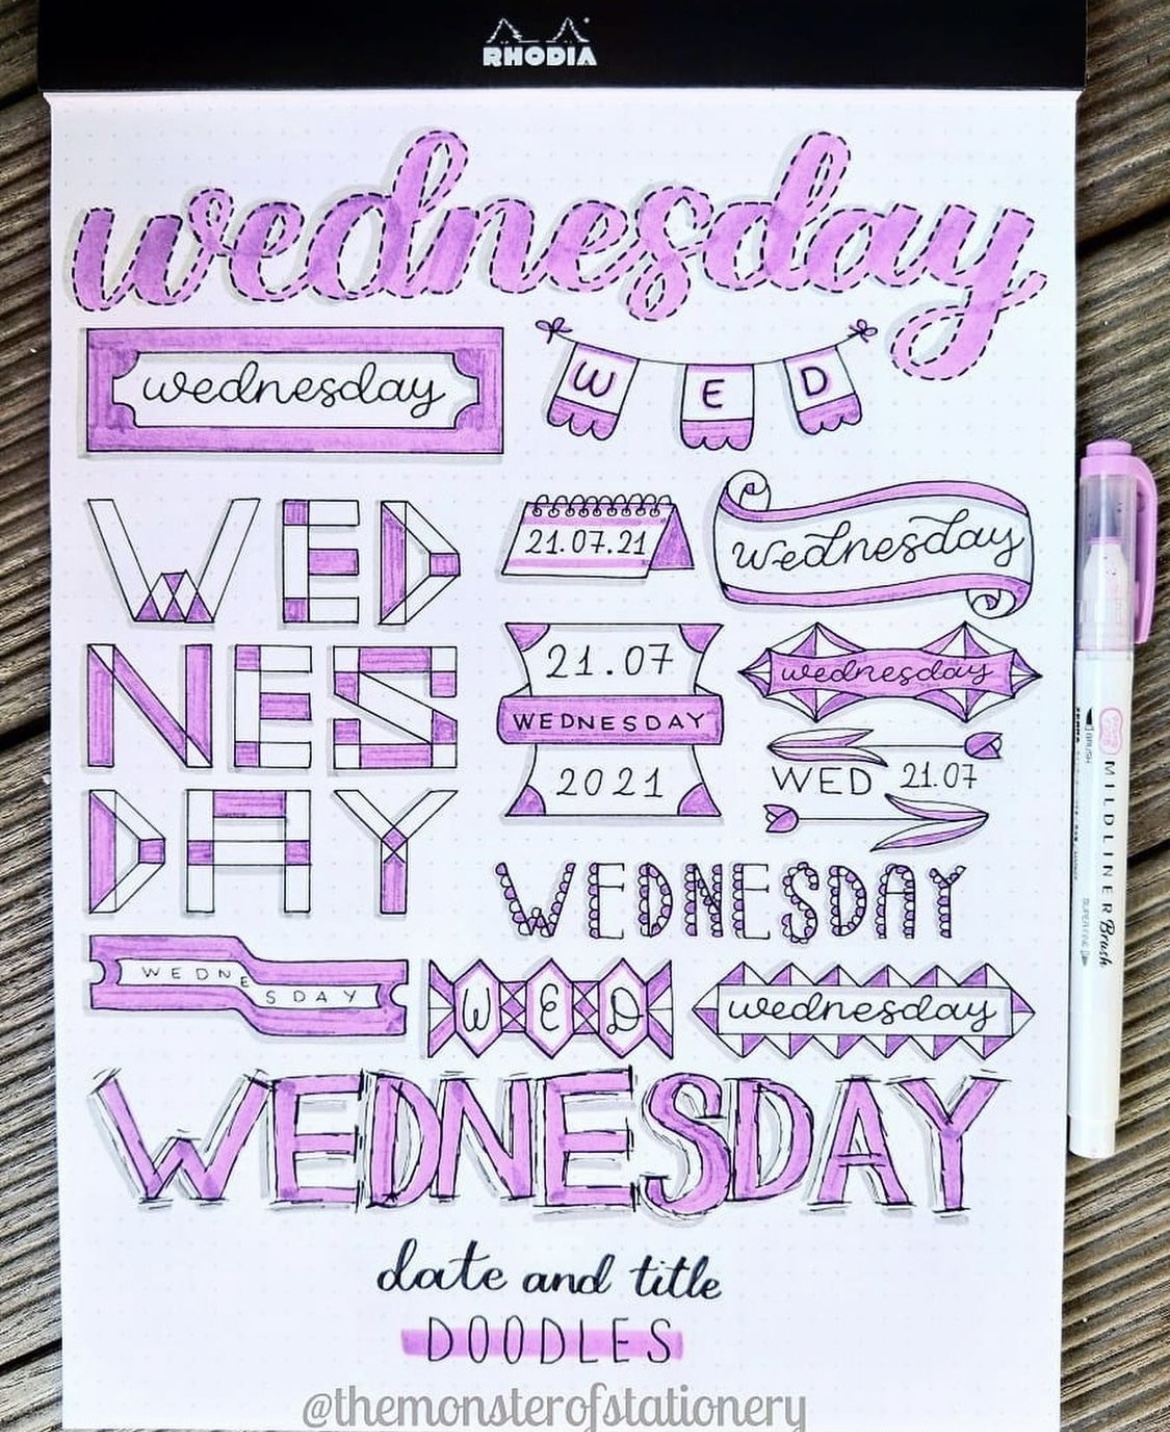 RHODIA
wednesday
wednesday
W E D
WED
21.07.21
wednesday
NES
21.07
WEDNESDAY
2021
wednesday
WED 21.07
DAY
WEDNESDAY
WEDNESDAY
WED
wednesday
WEDNESDAY
date and title
DOODLES
@themonsterofstationery
MILDLINER Brush